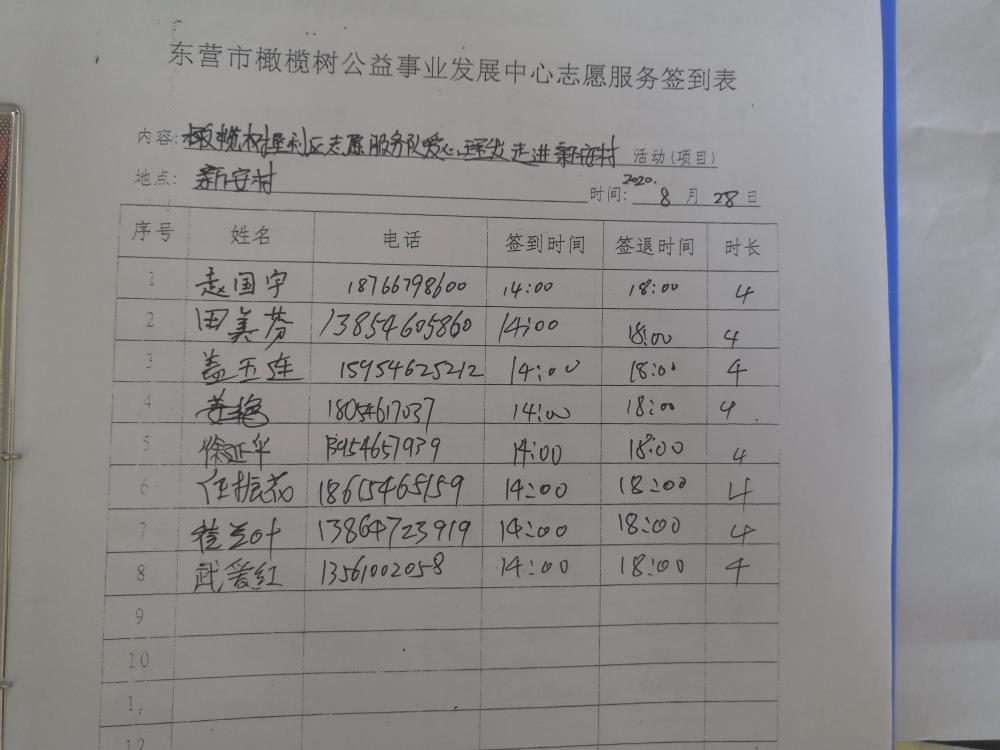 东营市橄榄树公益事业发展中心志愿服务签到表
内容: 橄榄树垦利区志愿服务队爱心理发走进新安村 活动(项目)
地点: 新安村 时间: 2020. 8 月 28 日
序号 姓名 电话 签到时间 签退时间 时长
1 赵国宇 18766798600 14:00 18:00 4
2 田美芬 13854605860 14:00 18:00 4
3 盖玉连 15954625212 14:00 18:00 4
4 姜艳 18054617037 14:00 18:00 4
5 徐延华 13954657939 14:00 18:00 4
6 任振花 18615465159 14:00 18:00 4
7 桂兰叶 13864723919 14:00 18:00 4
8 武爱红 13561002058 14:00 18:00 4
9
10
12